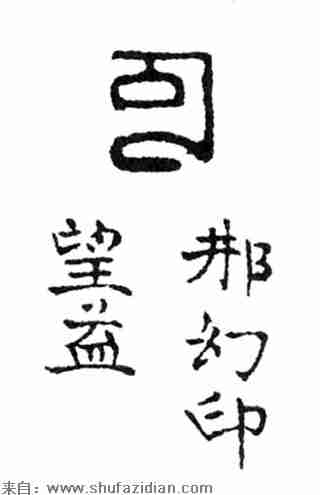 邢幻印
望益
来自：www.shufazidian.com